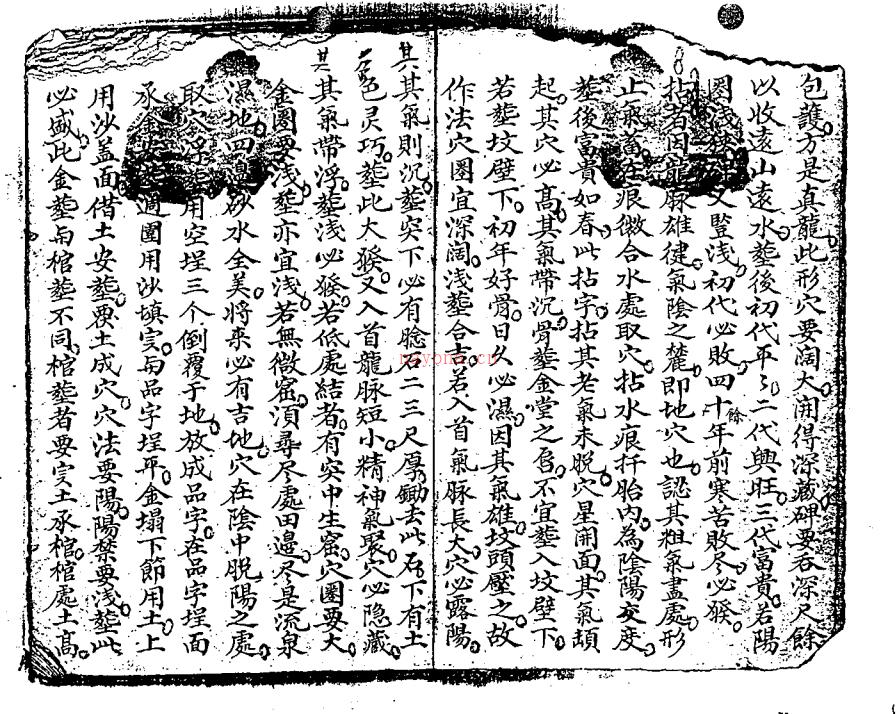 包護方是真龍此形穴要闊大開得深藏碑要吞深尺餘
以收遠山遠水塟後初代平々二代興旺三代富貴若陽
圈淺 又豎淺初代必敗四十餘年前寒苦敗尽必發
拈者因龍脉雄徤氣陰之麓即地穴也認其粗氣盡處形
止氣蓄在痕微合水處取穴拈水痕扦胎內為陰陽交度
塟後富貴如春此拈字拈其老氣未脫穴星開面其氣頡
起其穴必高其氣帶沉骨塟金堂之唇不宜塟入坟壁下
若塟坟壁下初年好骨日久必濕因其氣雄坟頭壓之故
作法穴圈宜深闊淺塟合吉若入首氣脉長大穴必露陽
其其氣則沉塟突下必有聡石二三尺厚鋤去此石下有土
石色灵巧塟此大發又入首龍脉短小精神氣聚穴必隐藏
其其氣帶浮塟淺必發若低處結者有突中生窟穴圈要大
金圈要淺塟亦宜淺若無微窟湏尋尽處田邉尽是流泉
濕地四邉砂水全美將來必有吉地穴在陰中脫陽之處
取穴浮塟用空埕三个倒覆于地放成品字在品字埕面
承金安塟週圍用沙填实与品字埕平金塌下節用土上
用沙盖面借土安塟要土成穴穴法要陽陽禁要淺塟此
必盛此金塟与棺塟不同棺塟者要实土承棺棺處土高
nayona.cn